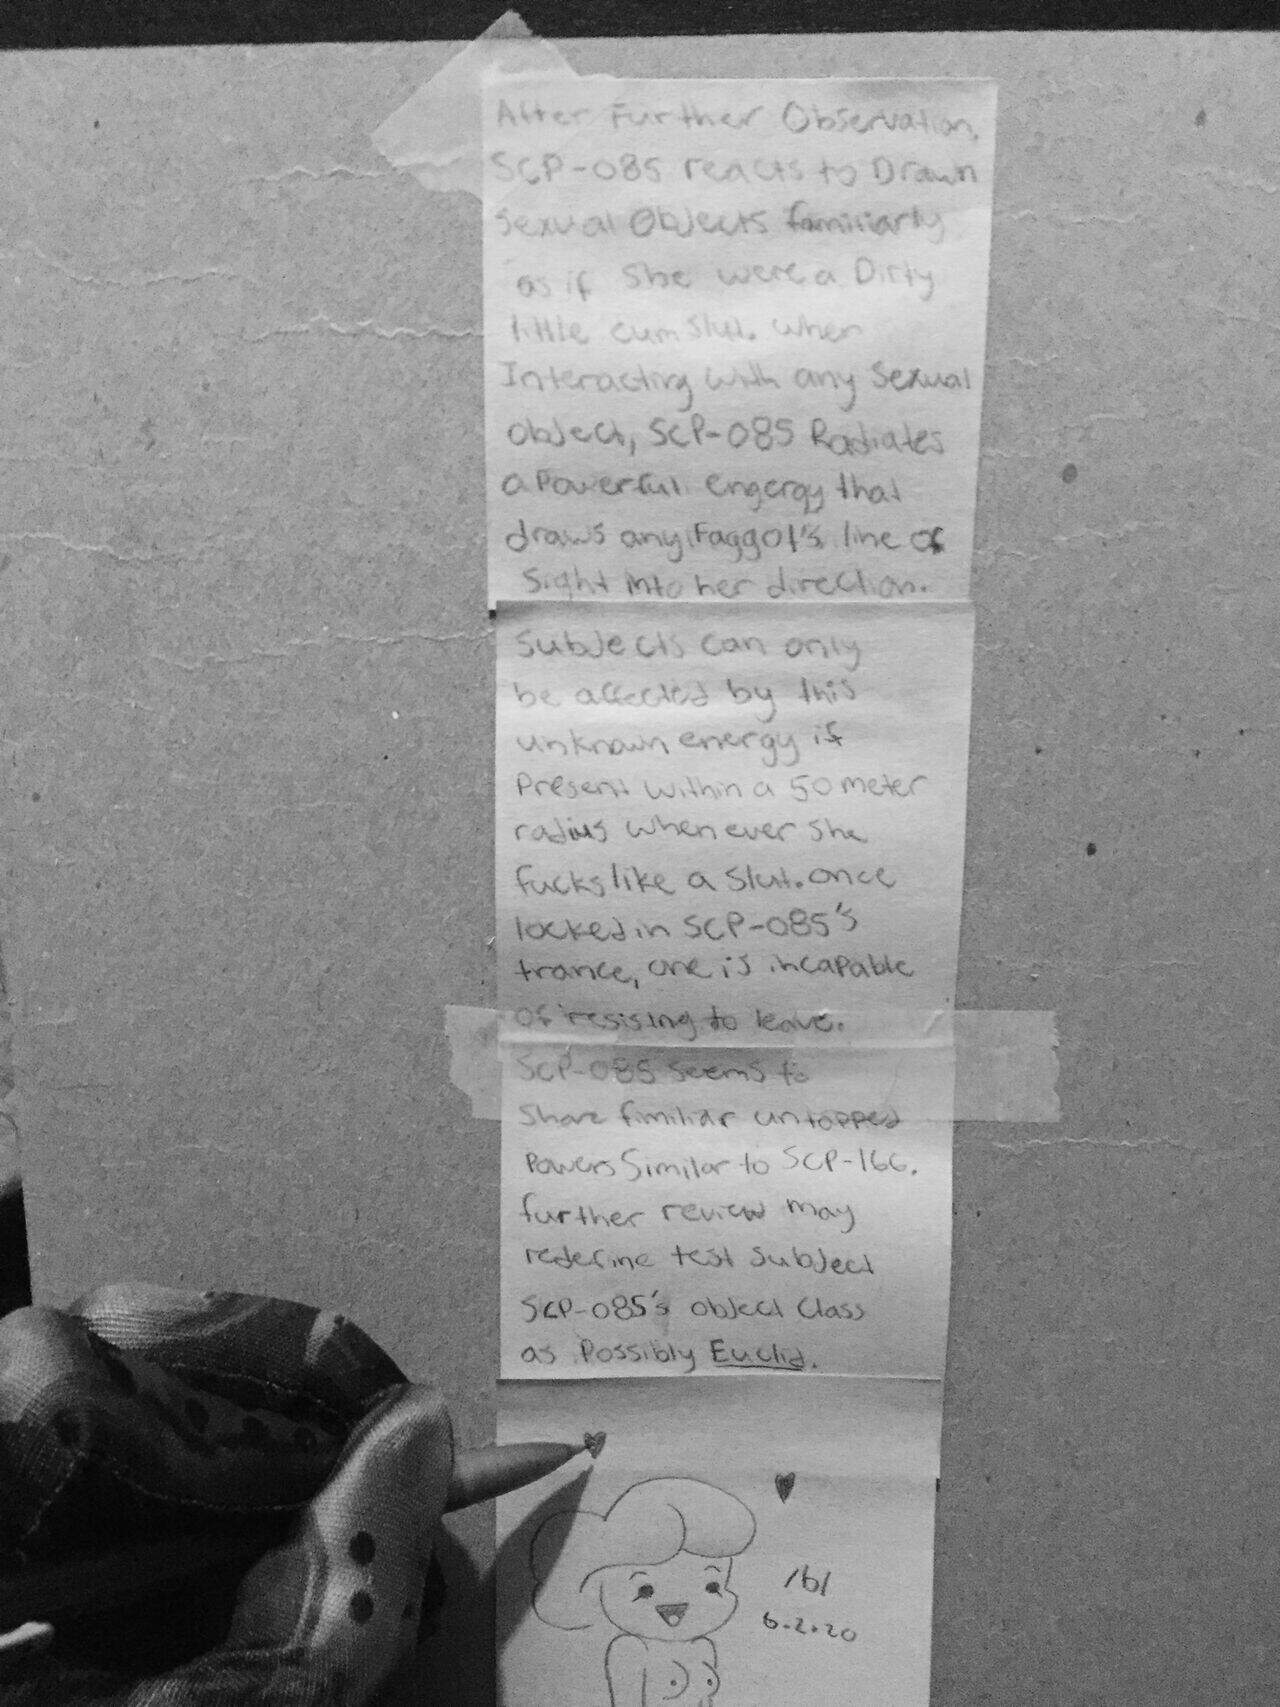 After Further Observation,
SCP-085 reacts to Drawn
Sexual Objects familiarly
as if She were a Dirty
little cumslut. when
Interacting with any Sexual
object, SCP-085 Radiates
a Powerful engergy that
draws any Faggot's line of
Sight into her direction.
Subjects can only
be affected by this
unknown energy if
Present within a 50 meter
radius whenever She
fucks like a Slut. once
locked in SCP-085's
trance, one is incapable
of resising to leave.
SCP-085 seems to
Share fimiliar untapped
Powers Similar to SCP-166.
further review may
redefine test Subject
SCP-085's object Class
as Possibly Euclid.
/b/
6-2-20